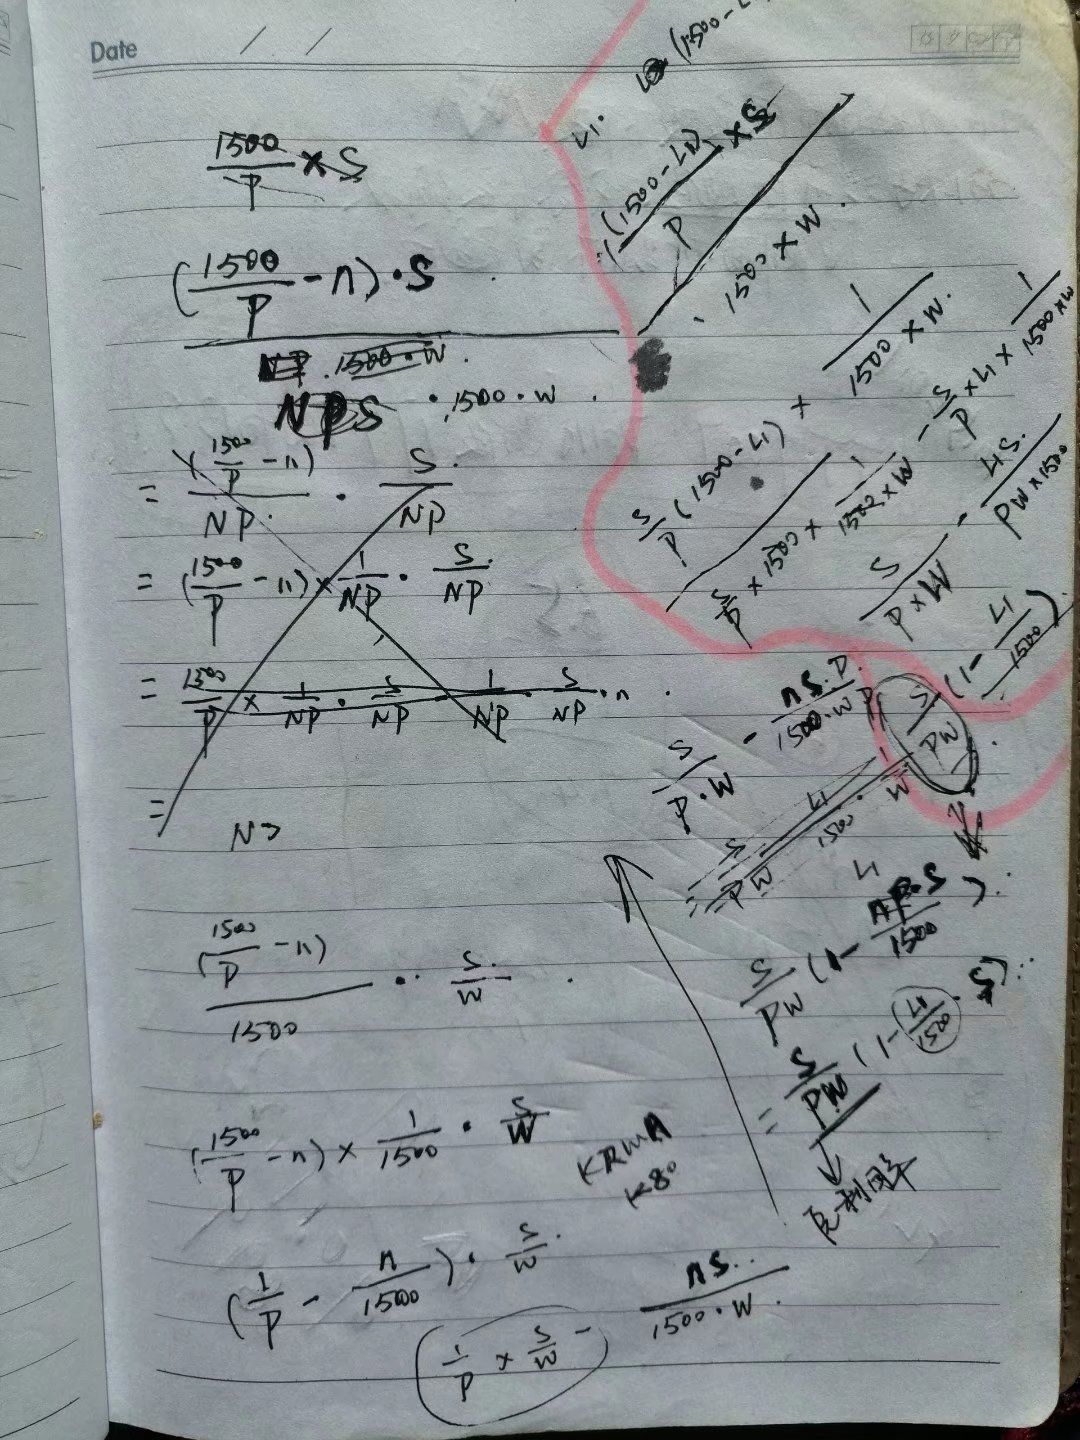 Date / /
1500/P × S
(1500/P - n) · S
1500 · W .
NPS · 1500 · W .
= (1500/P - n)/NP · S/NP
= (1500/P - n) × 1/NP · S/NP
= 1500/P × 1/NP · S/NP - 1/NP · S/NP · n .
=
N
(1500/P - n)/1500 · S/W .
(1500/P - n) × 1/1500 · S/W
(1/P - n/1500) · S/W .
1/P × S/W - nS/1500 · W .
KRMA
K80
(1500 -
L1 .
(1500 - L1)/P × S
1500 × W .
S/P (1500 - L1) × 1/1500 × W .
S/P × 1500 × 1/1500 × W - S/P × L1 × 1/1500 × W
S/P × W - L1 S/PW × 1500 .
S/PW (1 - L1/1500) .
S/P · W - nS · P/1500 · W P
= S/PW L1/1500 · 1/W
L1
S/PW (1 - nP · S/1500)
= S/PW (1 - L1/1500 · S)